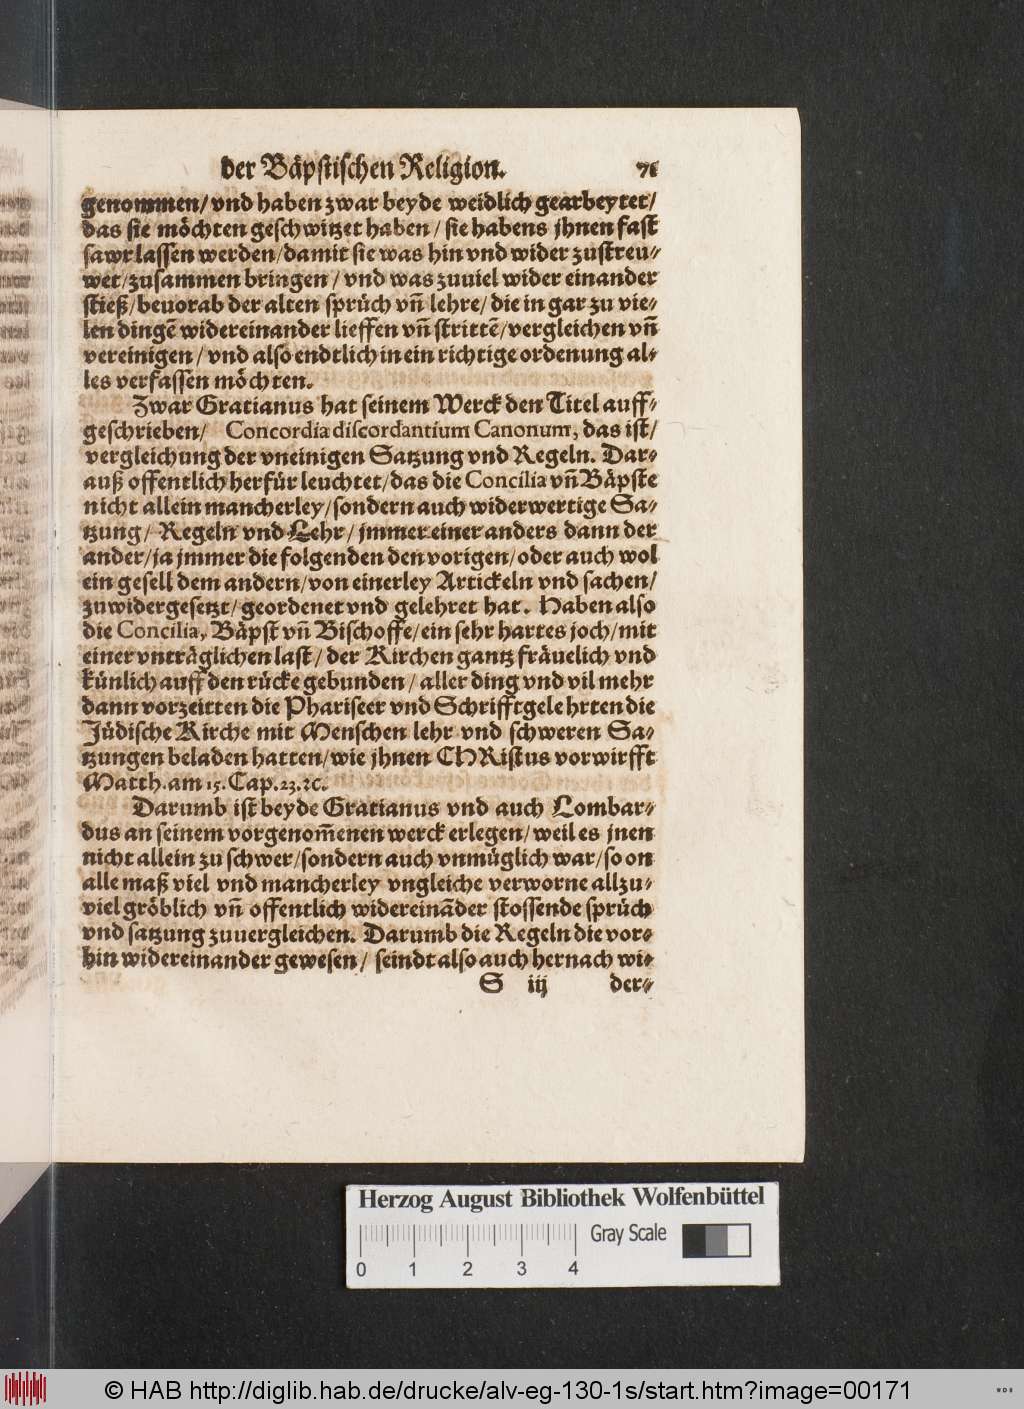 der Bäpstischen Religion. 71
genommen/ vnd haben zwar beyde weidlich gearbeytet/
das sie möchten geschwitzet haben / sie habens jhnen fast
sawr lassen werden/damit sie was hin vnd wider zustreu⸗
wet/zusammen bringen / vnd was zuuiel wider einander
stieß/beuorab der alten sprüch vñ lehre/ die in gar zu vie⸗
len dingẽ widereinander lieffen vñ strittẽ/vergleichen vñ
vereinigen / vnd also endtlich in ein richtige ordenung al⸗
les verfassen möchten.
Zwar Gratianus hat seinem Werck den Titel auff⸗
geschrieben/ Concordia discordantium Canonum, das ist/
vergleichung der vneinigen Satzung vnd Regeln. Dar⸗
auß offentlich herfür leuchtet/das die Concilia vñ Bäpste
nicht allein mancherley/sondern auch widerwertige Sa⸗
tzung/ Regeln vnd Lehr / jmmer einer anders dann der
ander/ja jmmer die folgenden den vorigen/oder auch wol
ein gesell dem andern/von einerley Artickeln vnd sachen/
zuwidergesetzt/geordenet vnd gelehret hat. Haben also
die Concilia, Bäpst vñ Bischoffe/ein sehr hartes joch/mit
einer vnträglichen last / der Kirchen gantz fräuelich vnd
künlich auff den rücke gebunden / aller ding vnd vil mehr
dann vorzeitten die Phariseer vnd Schrifftgelehrten die
Jüdische Kirche mit Menschen lehr vnd schweren Sa⸗
tzungen beladen hatten/wie jhnen CHRistus vorwirfft
Matth. am 15. Cap. 23. ꝛc.
Darumb ist beyde Gratianus vnd auch Lombar⸗
dus an seinem vorgenom̃enen werck erlegen/ weil es jnen
nicht allein zu schwer/sondern auch vnmüglich war/so on
alle maß viel vnd mancherley vngleiche verworne allzu⸗
viel gröblich vñ offentlich widereinãder stossende sprüch
vnd satzung zuuergleichen. Darumb die Regeln die vor⸗
hin widereinander gewesen/ seindt also auch hernach wi⸗
S iij der⸗
Herzog August Bibliothek Wolfenbüttel
Gray Scale
0 1 2 3 4
© HAB http://diglib.hab.de/drucke/alv-eg-130-1s/start.htm?image=00171